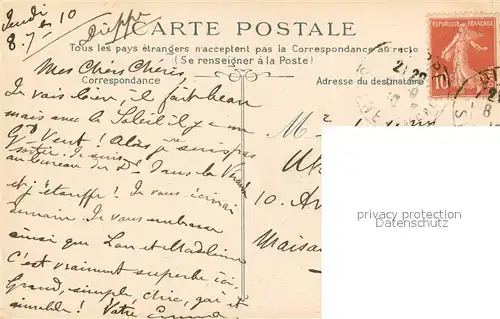 Jeudi
8.7-10
Dieppe
CARTE POSTALE
Tous les pays étrangers n'acceptent pas la Correspondance au recto
(Se renseigner à la Poste)
Correspondance
Adresse du destinataire
RÉPUBLIQUE FRANÇAISE
10
Mes Chers Chéris,
Je vais bien, il fait beau
mais avec le Soleil il y a un
Gd Vent! Aussi je suis pas
sortie. Je suis dans la
au bureau de
et j'étouffe! Je vous écrirai
demain. Je vous embrasse
ainsi que et Madeleine
C'est vraiment superbe ici,
Grand, simple, chic, gai et
aimable! Votre Emma
10. Av
Maisons
privacy protection